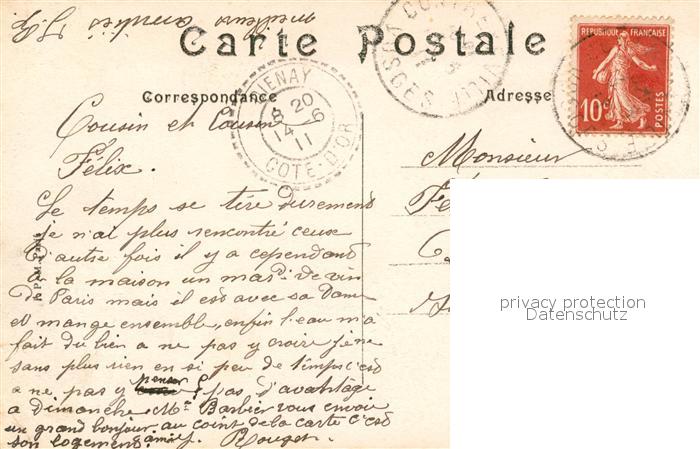 meilleurs amitiés
Carte Postale
RÉPUBLIQUE FRANÇAISE
10c
POSTES
Correspondance
Adresse
DIENAY
8 20
14 - 6
11
COTE-D'OR
CONTREX
VOSGES
Cousin et Cousine
Félix.
Monsieur
Le temps se tire durement
je n'ai plus rencontré ceux
d'autre fois il y a cependant
a la maison un mard. de vin
de Paris mais il est avec sa Dame
et mange ensemble, enfin l'eau m'a
fait du bien a ne pas y croire je ne
sans plus rien en si peu de temps c'est
a ne pas y penser pas d'avantage
a Dimanche Mr Barbier vous envoie
un grand bonjour. au coint de la carte c'est
son logement. amies. Rouget
privacy protection
Datenschutz